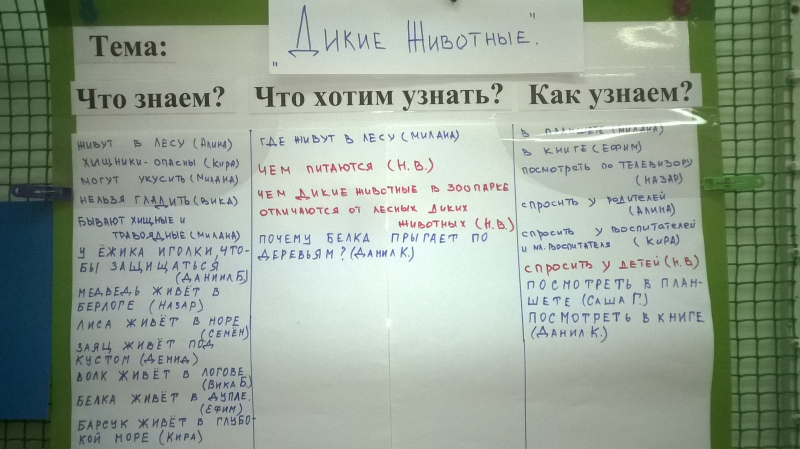 Тема:
"Дикие Животные."
Что знаем?
живут в лесу (Алина)
хищники - опасны (Кира)
могут укусить (Милана)
нельзя гладить (Вика)
бывают хищные и
травоядные (Милана)
у ёжика иголки, что-
бы защищаться
(Даниил Б.)
медведь живёт в
берлоге (Назар)
лиса живёт в норе
(Семён)
заяц живёт под
кустом (Демид)
волк живёт в логове
(Вика Б.)
белка живёт в дупле.
(Ефим)
барсук живёт в глубо-
кой море (Кира)
Что хотим узнать?
где живут в лесу (Милана)
чем питаются (Н.В.)
чем дикие животные в зоопарке
отличаются от лесных диких
животных (Н.В.)
почему белка прыгает по
деревьям? (Данил К.)
Как узнаем?
в планшете (Милана)
в книге (Ефим)
посмотреть по телевизору
(Назар)
спросить у родителей
(Алина)
спросить у воспитателей
и мл. воспитателя (Кира)
спросить у детей (Н.В.)
посмотреть в план-
шете (Саша Г.)
посмотреть в книге
(Данил К.)